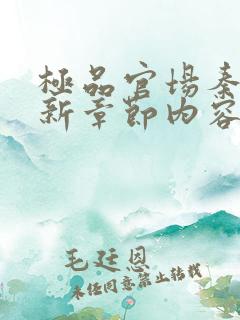 極品官場秦
新章節内容
毛廷恩
未经同意禁止转载